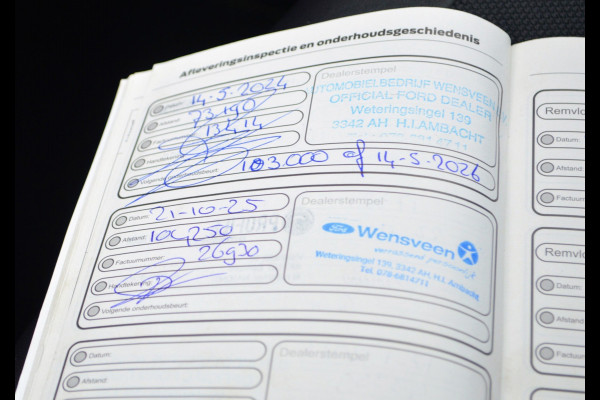 Afleveringsinspectie en onderhoudsgeschiedenis
Datum: 14-5-2024
Afstand: 73.190
13414
Handtekening:
Volgende onderhoudsbeurt: 103.000 of 14-5-2026
Dealerstempel
AUTOMOBIELBEDRIJF WENSVEEN
OFFICIAL FORD DEALER
Weteringsingel 139
3342 AH H.I.AMBACHT
Datum: 21-10-25
Afstand: 109250
Factuurnummer: 26930
Handtekening:
Volgende onderhoudsbeurt:
Dealerstempel
Ford Wensveen
verrassend persoonlijk
Weteringsingel 139, 3342 AH, H.I. Ambacht
Tel. 078-6814711
Datum:
Afstand:
Dealerstempel
Datum:
Afstand:
Factuur
Datum:
Afstand:
Factuur